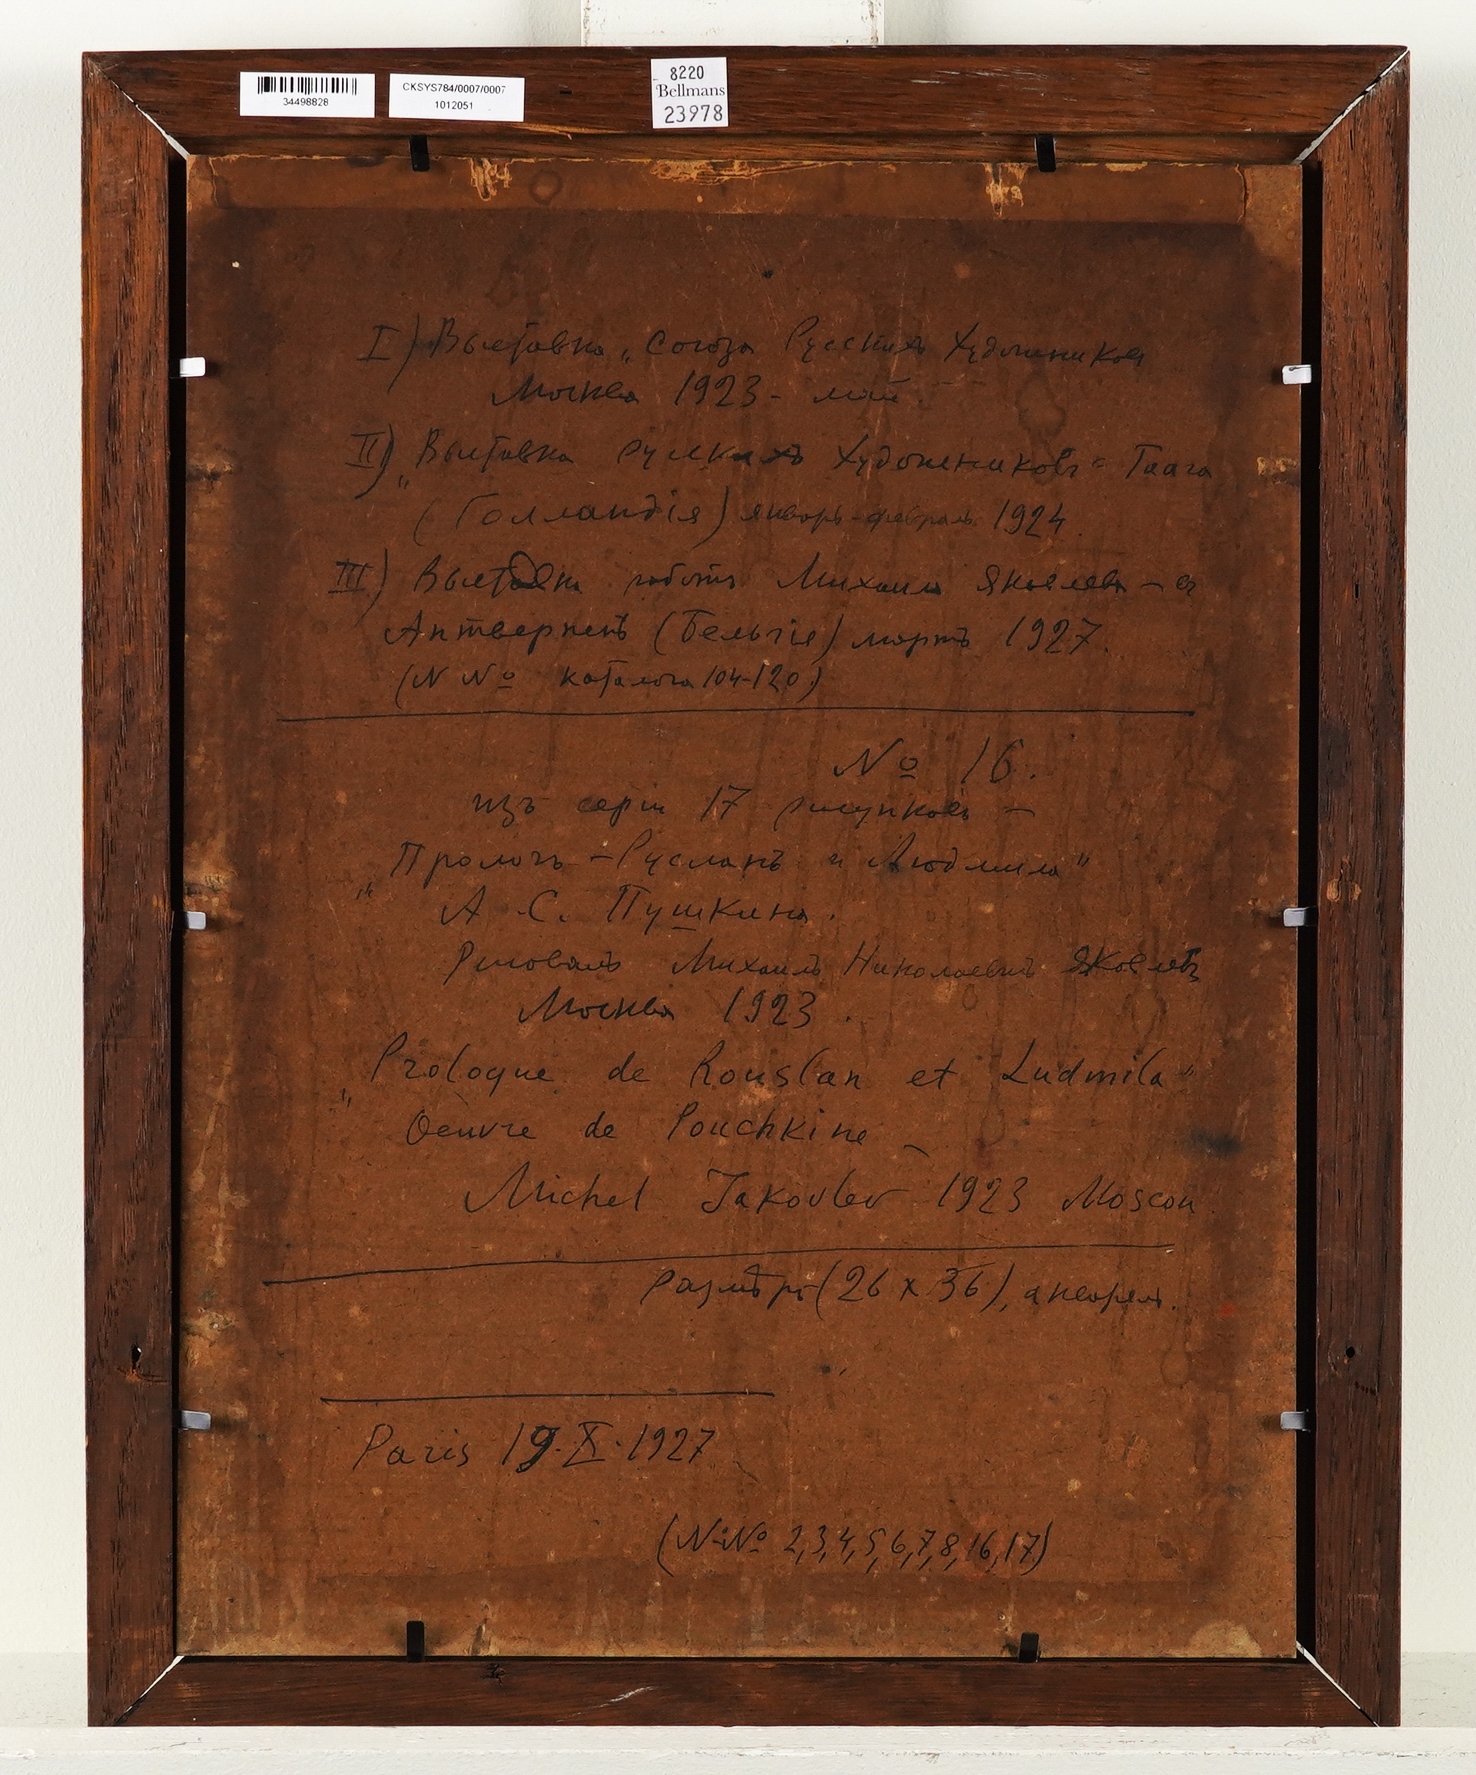 34498828
CKSYS784/0007/0007
1012051
8220
Bellmans
23978
I) Выставка „Союза Русскихъ Художниковъ
Москва 1923 - май.
II) „Выставка русскихъ художниковъ" Гаага
(Голландія) январь-февраль 1924.
III) Выставка работъ Михаила Яковлева – въ
Антверпенъ (Бельгія) мартъ 1927.
(N Nº каталога 104-120)
Nº 16.
изъ серіи 17 рисунковъ –
„Прологъ – Русланъ и Людмила"
А. С. Пушкина.
Рисовалъ Михаилъ Николаевичъ Яковлевъ
Москва 1923.
„Prologue de Rouslan et Ludmila"
Oeuvre de Pouchkine –
Michel Jakovlev 1923 Moscou
Размѣръ (26 x 36), акварель.
Paris 19·X·1927
(N-Nº 2,3,4,5,6,7,8,16,17)